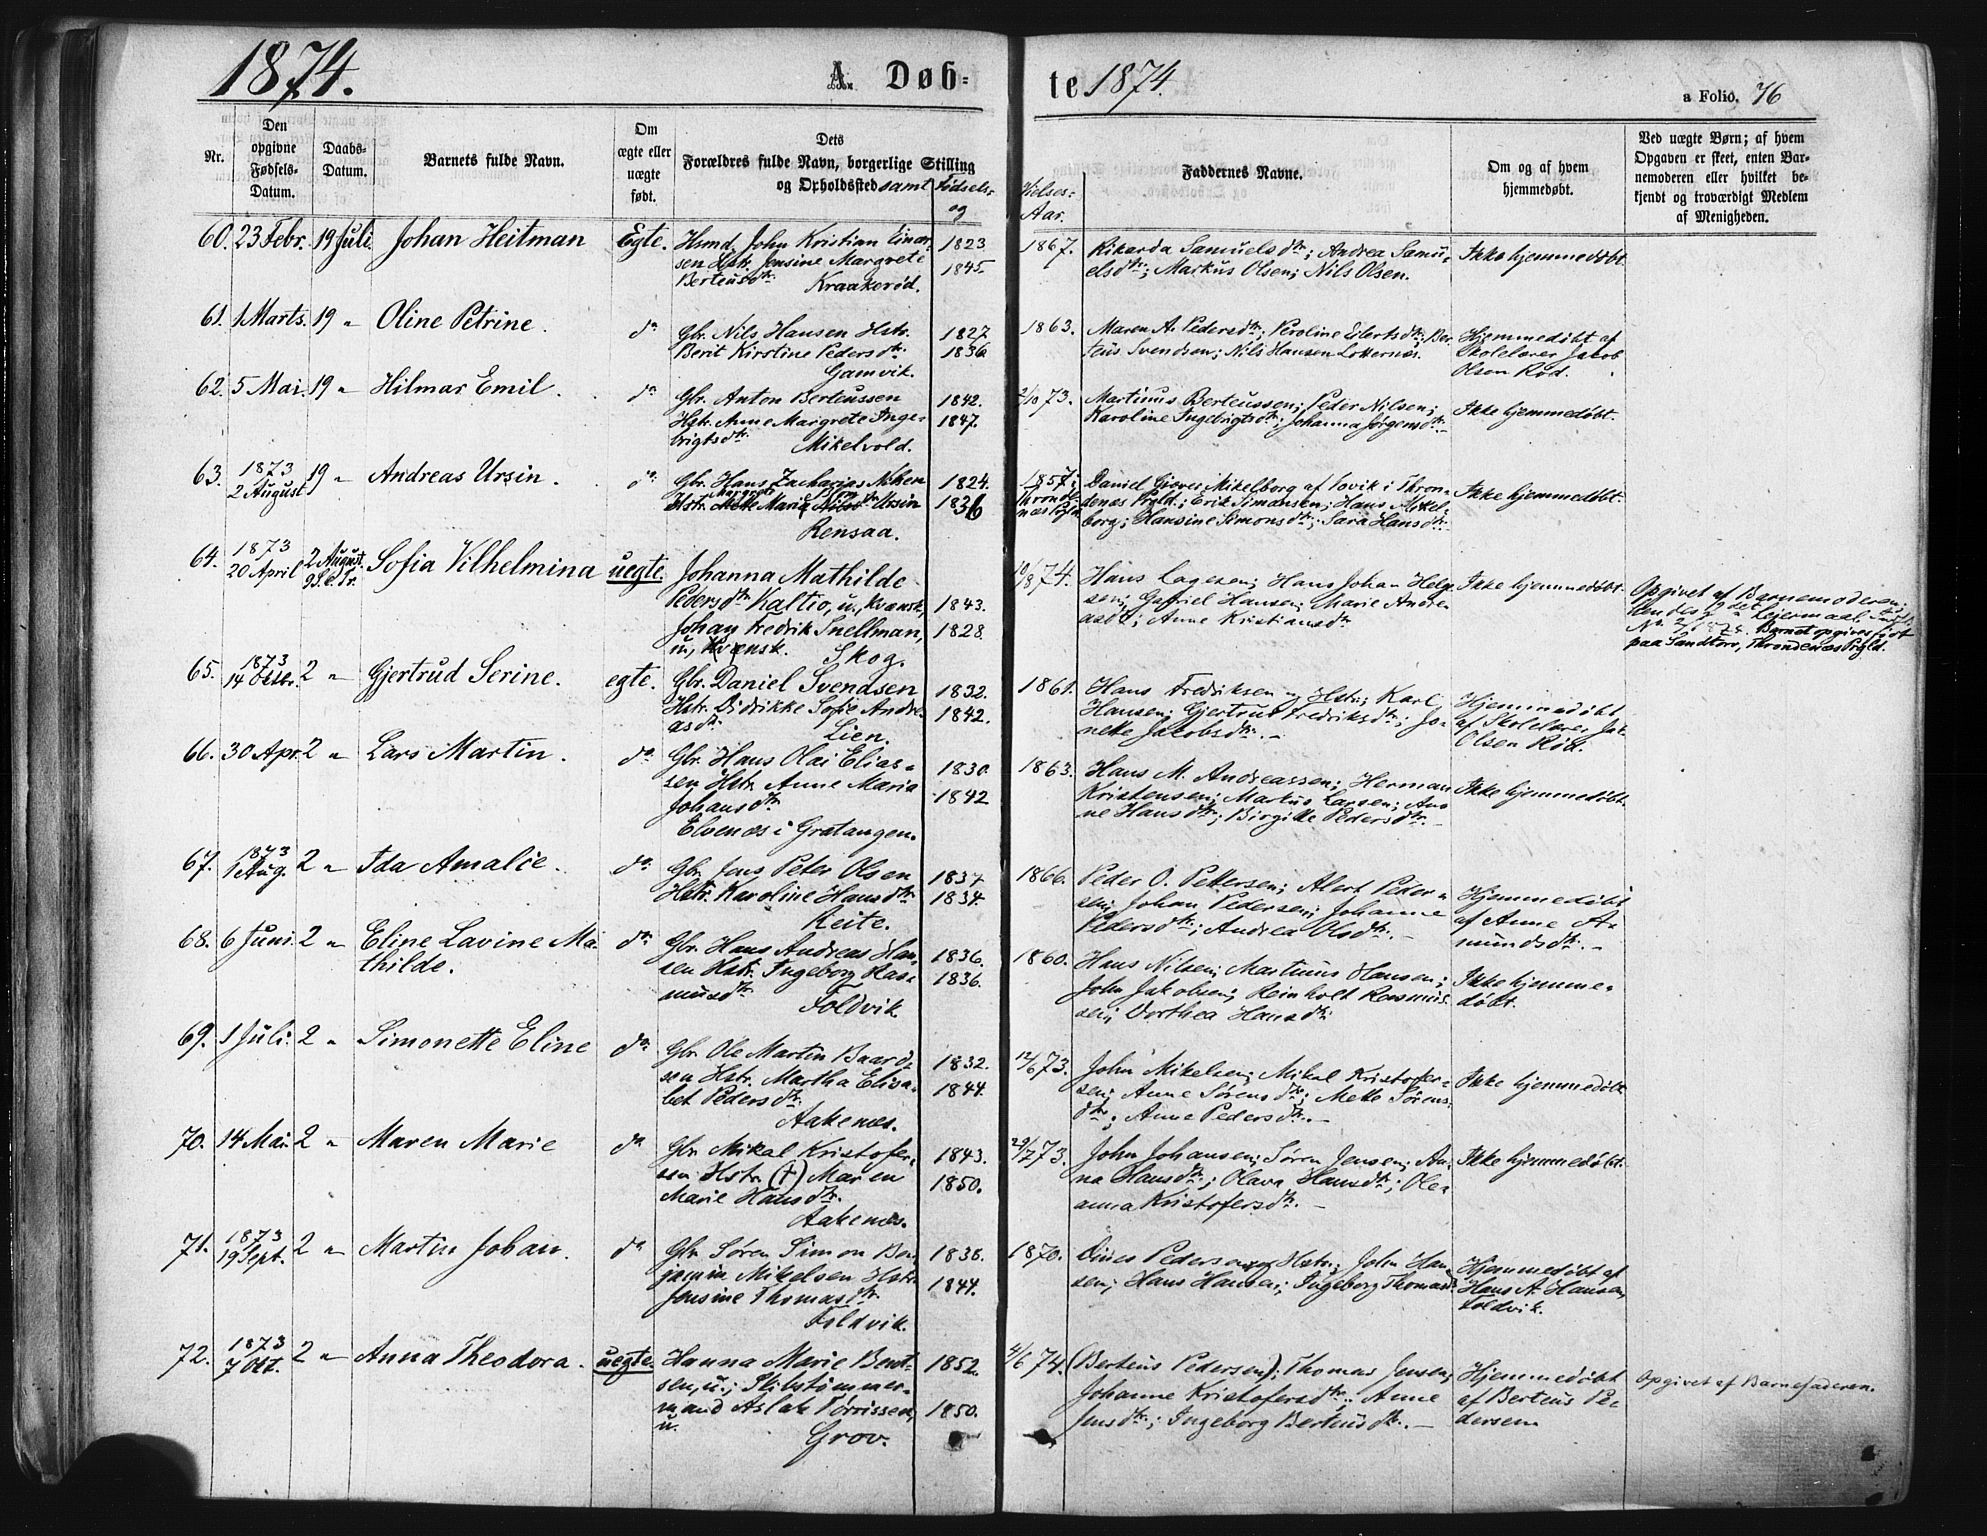 1874.
A. Døb-
te 1874.
a Folio. 76
Nr.
Den
opgivne
Fødsels-
Datum.
Daabs-
Datum.
Barnets fulde Navn.
Om
ægte eller
uægte
født.
Dets
Forældres fulde Navn, borgerlige Stilling
og Opholdssted samt Fødsels-
og
Vielses-
Aar.
Faddernes Navne.
Om og af hvem
hjemmedøbt.
Ved uægte Børn; af hvem
Opgaven er skeet, enten Bar-
nemoderen eller hvilket be-
kjendt og troværdigt Medlem
af Menigheden.
60. 23 Febr. 19 Juli Johan Heitman Egte.
Hsmd. John Kristian Einar-
sen Hstr. Jensine Margrete
Berteusdtr. Kraakerød.
1823
1845.
1867. Rikarda Samuelsdtr; Andrea Samu-
elsdtr; Markus Olsen; Nils Olsen.
Ikke hjemmedøbt.
61. 1 Marts. 19 " Oline Petrine. do
Gbr. Nils Hansen Hstr.
Berit Kirstine Pedersdtr.
Gamvik.
1827.
1836.
1863. Maren A. Pedersdtr; Peroline Eilertsdtr; Ber-
teus Svendsen; Nils Hansen
Hjemmedøbt af
Skolelærer Jakob
Olsen Rød.
62. 5 Mai. 19 " Hilmar Emil. do
Gbr. Anton Berteussen
Hstr. Anne Margrete Inge-
brigtsdtr. Mikelvold.
1842.
1847.
2/10 73. Martinus Berteussen; Peder Nilsen;
Karoline Ingebrigtsdtr; Johanna Jørgensdtr.
Ikke hjemmedøbt.
63. 1873
2 August 19 " Andreas Ursin. do
Gbr. Hans Zacharias
Hstr. Mette Maria Ursin
Rensaa.
1824.
1836
1857 i
Throndenæs Prgld.
Daniel Mikelborg af i Thron-
denæs Prgld.; Erik Simonsen; Hans Mikel-
borg; Hansine Simonsdtr; Sara Hansdtr.
Ikke hjemmedøbt.
64. 1873
20 April 2 August
9 S. e. Tr. Sofia Vilhelmina uegte.
Johanna Mathilde
Pedersdtr Kaltio, u., kvænsk,
Johan Fredrik Snellman,
u., kvænsk. Skog.
1843.
1828.
10/8 74. Hans Lagesen; Hans Johan Helge-
sen; Gabriel Hansen; Marie Andre-
asdtr; Anne Kristiansdtr
Ikke hjemmedøbt.
Opgivet af Barnemoderen;
hendes 1ste, det 2det Leiermaal.
Barnet opgives født
paa Sandtorv, Throndenæs Prgld.
65. 1873
14 Oktbr. 2 " Gjertrud Serine. egte.
Gbr. Daniel Svendsen
Hstr. Didrikke Sofie Andre-
asdtr. Lien.
1832.
1842.
1861. Hans Fredriksen og Hstr; Karl
Hansen; Gjertrud Fredriksdtr; Jo-
nette Jakobsdtr.
Hjemmedøbt
af Skolelærer Jak.
Olsen Rød.
66. 30 Apr. 2 " Lars Martin. do
Gbr. Hans Olai Elias-
sen Hstr. Anne Maria
Johansdtr
Elvenæs i Gratangen.
1830.
1842
1863. Hans M. Andreassen; Herman
Kristensen; Markus Larsen; An-
ne Hansdtr; Birgitte Pedersdtr.
Ikke hjemmedøbt.
67. 1873
1 Aug. 2 " Ida Amalie. do
Gbr. Jens Peter Olsen
Hstr. Karoline Hansdtr
Reite.
1837
1834.
1866. Peder O. Pettersen; Albert Peder-
sen; Johan Pedersen; Johanne
Pedersdtr; Andrea Olsdtr.
Hjemmedøbt
af Anne A-
mundsdtr.
68. 6 Juni. 2 " Eline Lavine Ma-
thilde. do
Gbr. Hans Andreas Han-
sen Hstr. Ingeborg Ras-
musdtr Foldvik
1836.
1836.
1860. Hans Nilsen; Martinus Hansen;
John Jakobsen; Reinholt Rasmus-
sen; Dorthea Hansdtr
Ikke hjemme-
døbt.
69. 1 Juli. 2 " Simonette Eline do
Gbr. Ole Martin Baard-
sen Hstr. Martha Elisa-
bet Pedersdtr.
Aakenæs.
1832.
1844.
12/6 73. John Mikelsen; Mikal Kristofer-
sen; Anne Sørensdtr; Mette Sørens-
dtr; Anne Pedersdtr.
Ikke hjemmedøbt
70. 14 Mai. 2 " Maren Marie do
Gbr. Mikal Kristofer-
sen Hstr. (†) Maren
Marie Hansdtr.
Aakenæs.
1843.
1850.
29/7 73. John Johansen; Søren Jensen; An-
na Hansdtr; Olava Hansdtr; Ole-
anna Kristofersdtr.
Ikke hjemmedøbt.
71. 1873
19 Sept. 2 " Martin Johan. do
Gbr. Søren Simon Ben-
jamin Mikelsen Hstr.
Jensine Thomasdtr
Foldvik.
1838.
1844.
1870. Dines Pedersen og Hstr; John Han-
sen; Hans Hansen; Ingeborg Thomasd.
Hjemmedøbt af
Hans A. Hansen
Foldvik.
72. 1873
7 Okt. 2 " Anna Theodora. uegte.
Hanna Marie Bent-
sen, u.; Skibstømmer-
mand Aslak Tørrissen,
u. Grov.
1852.
1850.
4/6 74. (Berteus Pedersen); Thomas Jensen;
Johanne Kristofersdtr; Anne
Jensdtr; Ingeborg Berteusdtr.
Hjemmedøbt
af Berteus Pe-
dersen
Opgivet af Barnefaderen.